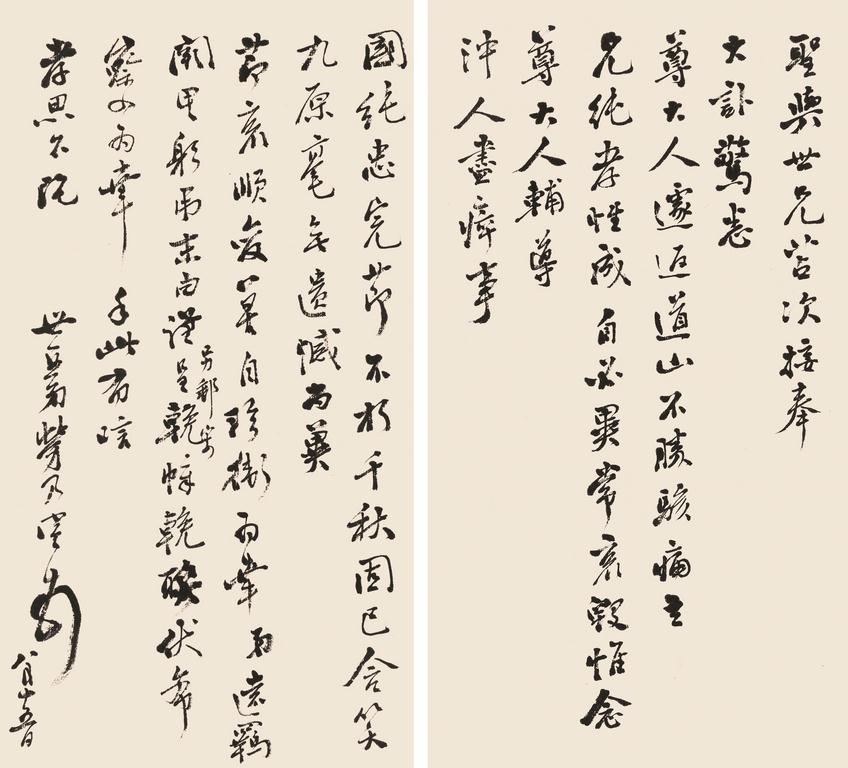 聖與世兄苫次接奉
大訃驚悉
尊大人遽返道山不勝駭痛之
兄純孝性成自必異常哀毀惟念
尊大人輔導
沖人盡瘁事
國純忠完節不朽千秋固已含笑
九原毫無遺憾尚冀
節哀順變善自珍衛為幸弟遠羈
關里躬弔末由謹呈輓幛輓聯伏希
另郵寄
察收為幸手此布唁
孝思不既
世愚弟勞乃宣
八月十五日